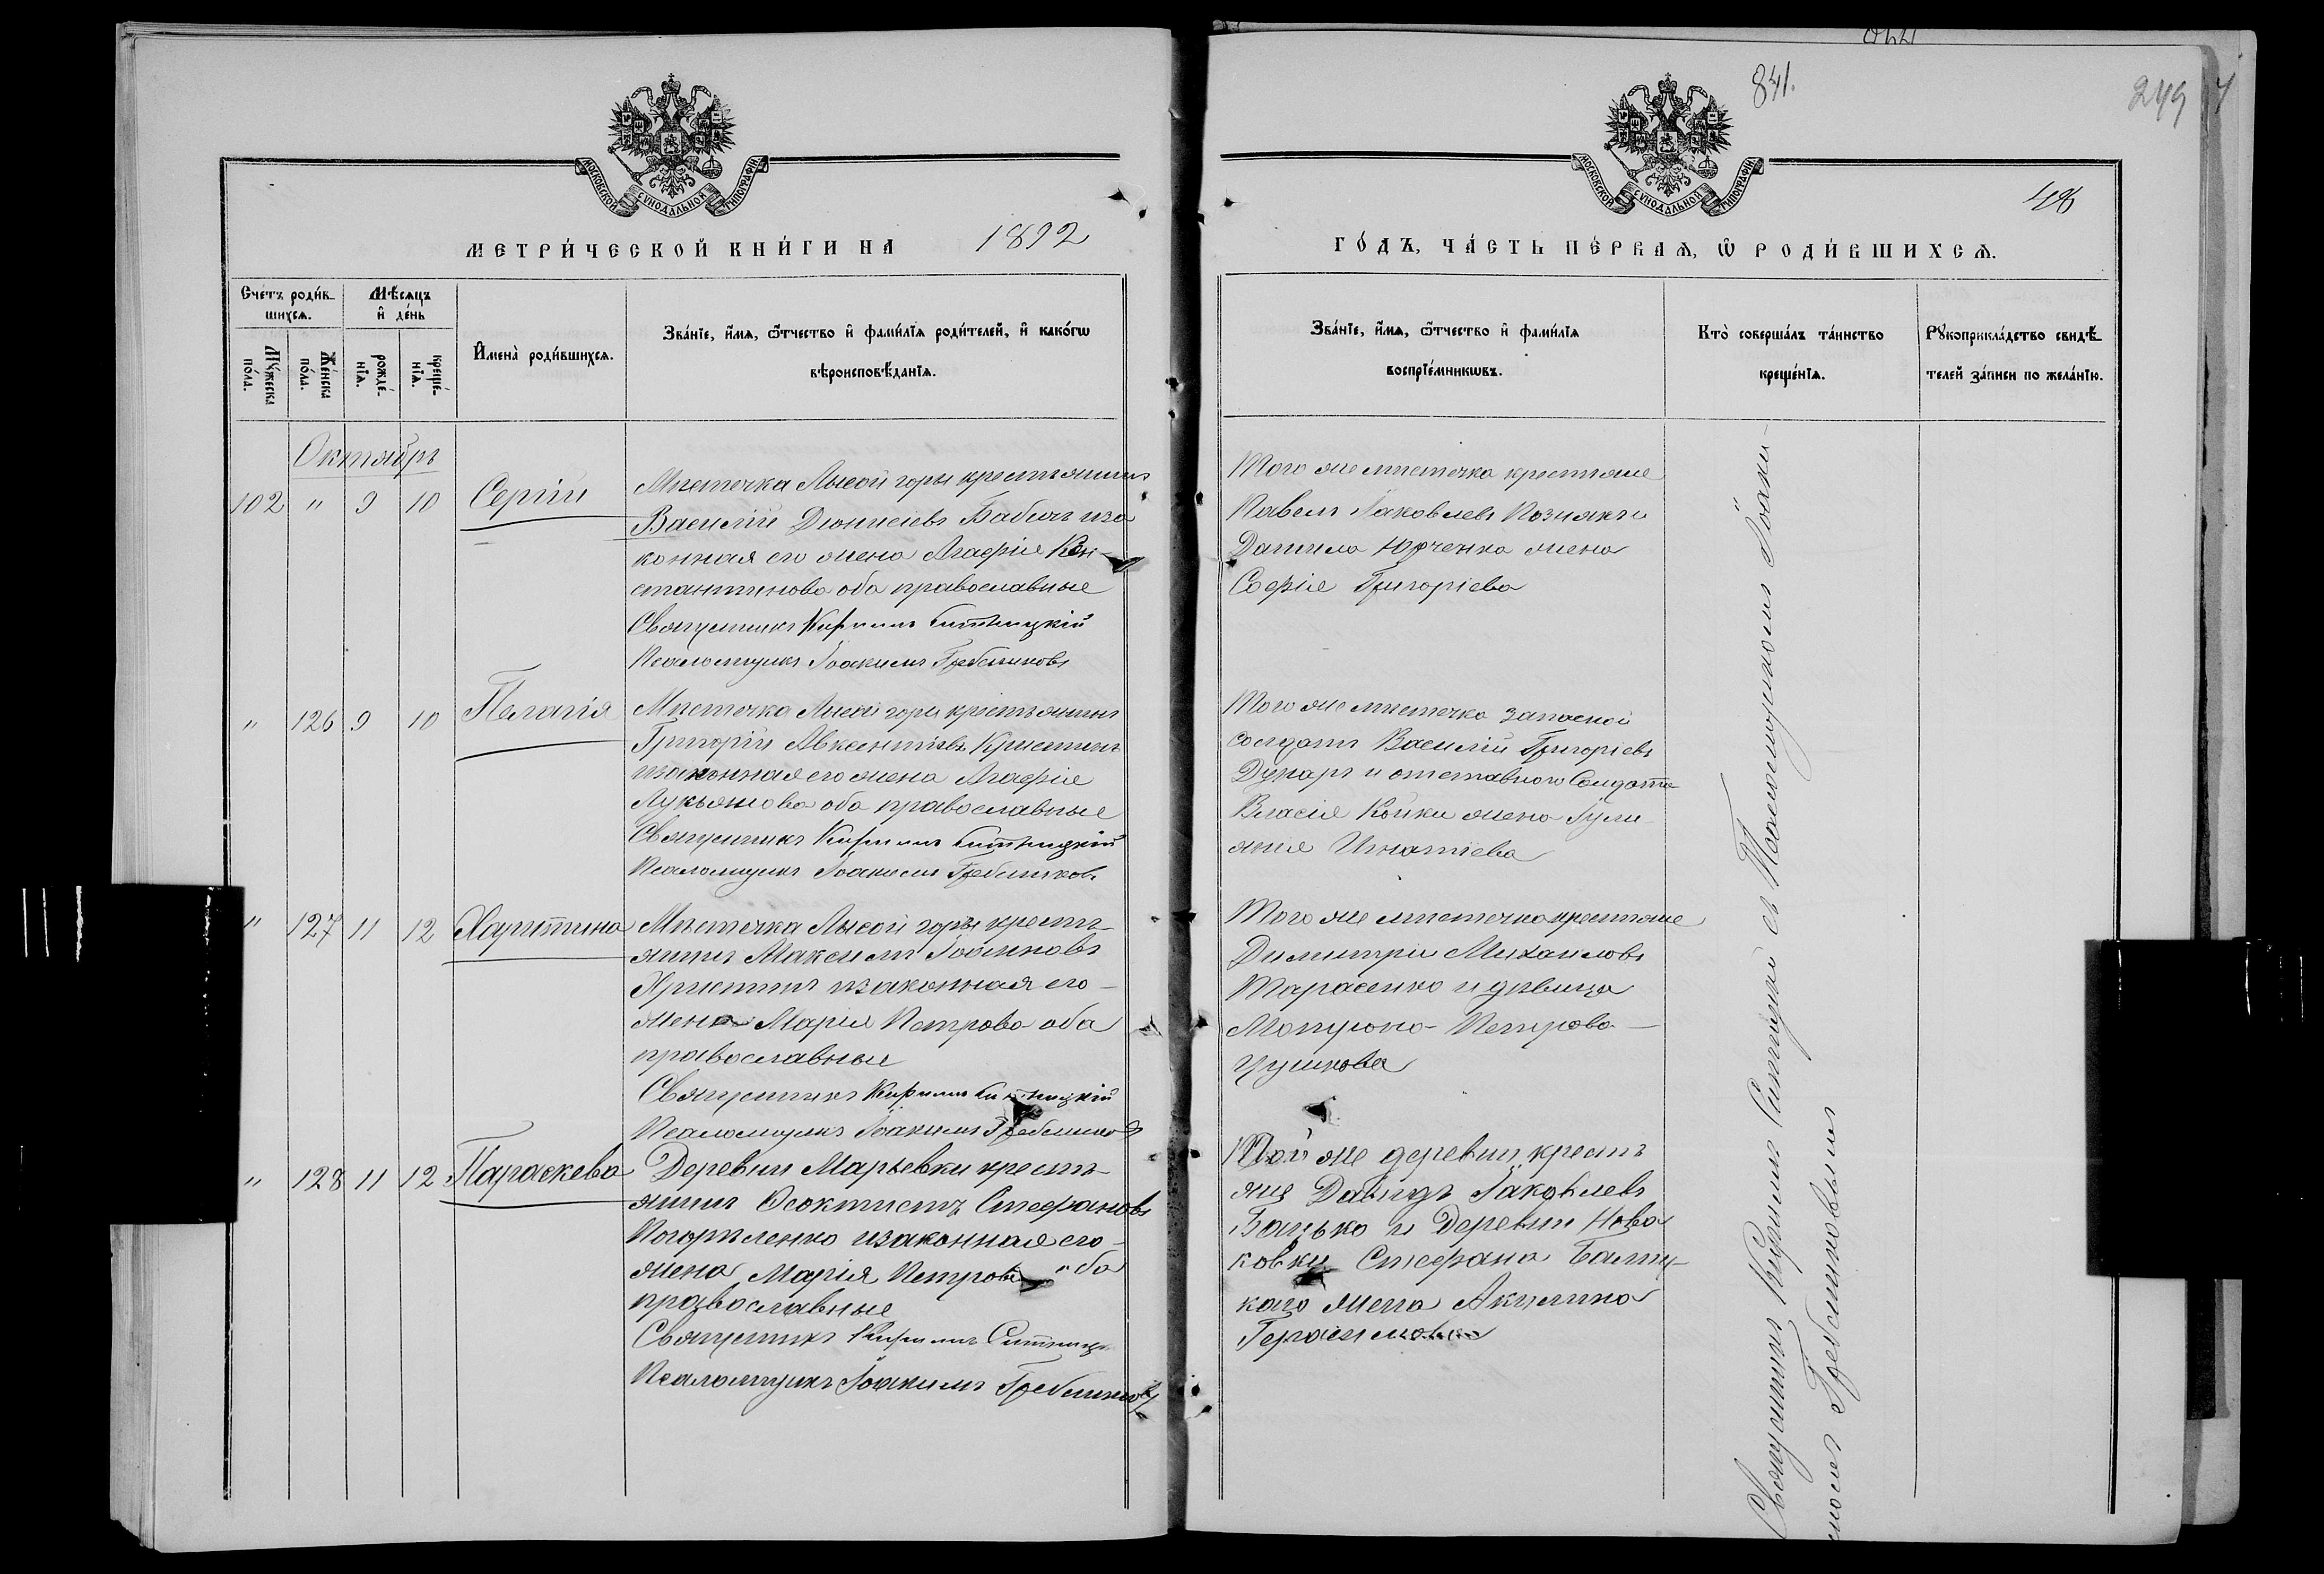 841.
249
48
МОСКОВСКОЙ СѴНОДАЛЬНОЙ ТИПОГРАФІИ
МОСКОВСКОЙ СѴНОДАЛЬНОЙ ТИПОГРАФІИ
МЕТРИ́ЧЕСКОЙ КНИ́ГИ НА 1892
ГО́ДЪ, ЧА́СТЬ ПЕ́РВАѦ, Ѽ РОДИ́ВШИХСѦ.
Счетъ роди́в-
шихсѧ.
Мѣ́сѧцъ
и҆ де́нь
Мꙋ́жеска
по́ла.
Же́нска
по́ла.
рожде́-
нїѧ.
креще́-
нїѧ.
И҆мена̀ роди́вшихсѧ.
Зва́нїе, и҆́мѧ, ѻ҆́тчество и҆ фами́лїѧ роди́телей, и҆ како́гѡ
вѣроисповѣ́данїѧ.
Зва́нїе, и҆́мѧ, ѻ҆́тчество и҆ фами́лїѧ
воспрїе́мникѡвъ.
Кто̀ соверша́лъ та́инство
креще́нїѧ.
Рꙋкоприкла́дство свидѣ́-
телей за́писи по жела́нїю.
Октябрь
102 " 9 10 Сергій
Мѣстечка Лысой горы крестьянинъ
Василій Діонисіевъ Бабичъ иза
конная его жена Агафія Кон-
стантинова оба православные
Священникъ Кириллъ Ситницкій
Псаломщикъ Іоакимъ Гребенниковъ
Того же мѣстечка крестьяне
Павелъ Іаковлевъ Познякъ и
Даніила Юрченка жена
Софія Григоріева
" 126 9 10 Пелагія
Мѣстечка Лысой горы крестьянинъ
Григорій Авксентіевъ Христинъ
изаконная его жена Агафія
Лукьянова оба православные
Священникъ Кириллъ Ситницкій
Псаломщикъ Іоакимъ Гребенниковъ
Того же мѣстечка запасной
солдатъ Василій Григоріевъ
и отставного Солдата
Власія Койки жена Іули
анія Игнатіева
" 127 11 12 Харитина
Мѣстечка Лысой горы кресть-
янинъ Максимъ Іоанновъ
Христинъ изаконная его
жена Марія Петрова оба
православные
Священникъ Кириллъ Ситницкій
Псаломщикъ Іоакимъ Гребенниковъ
Того же мѣстечка крестьяне
Димитрій Михаиловъ
Тарасенко и дѣвица
Петрова
" 128 11 12 Параскева
Деревни Марьевки кресть-
янинъ Ѳеоктистъ Стефановъ
Погорѣленко изаконная его
жена Марія Петрова оба
православные
Священникъ Кириллъ Ситницкій
Псаломщикъ Іоакимъ Гребенниковъ
Той же деревни кресть
яне Давидъ Іаковлевъ
Банько и Деревни Нова
ковки Стефана
жена Акилина
Герасимова
Священникъ Кириллъ Ситницкій съ Псаломщикомъ Іоаки-
момъ Гребенниковымъ